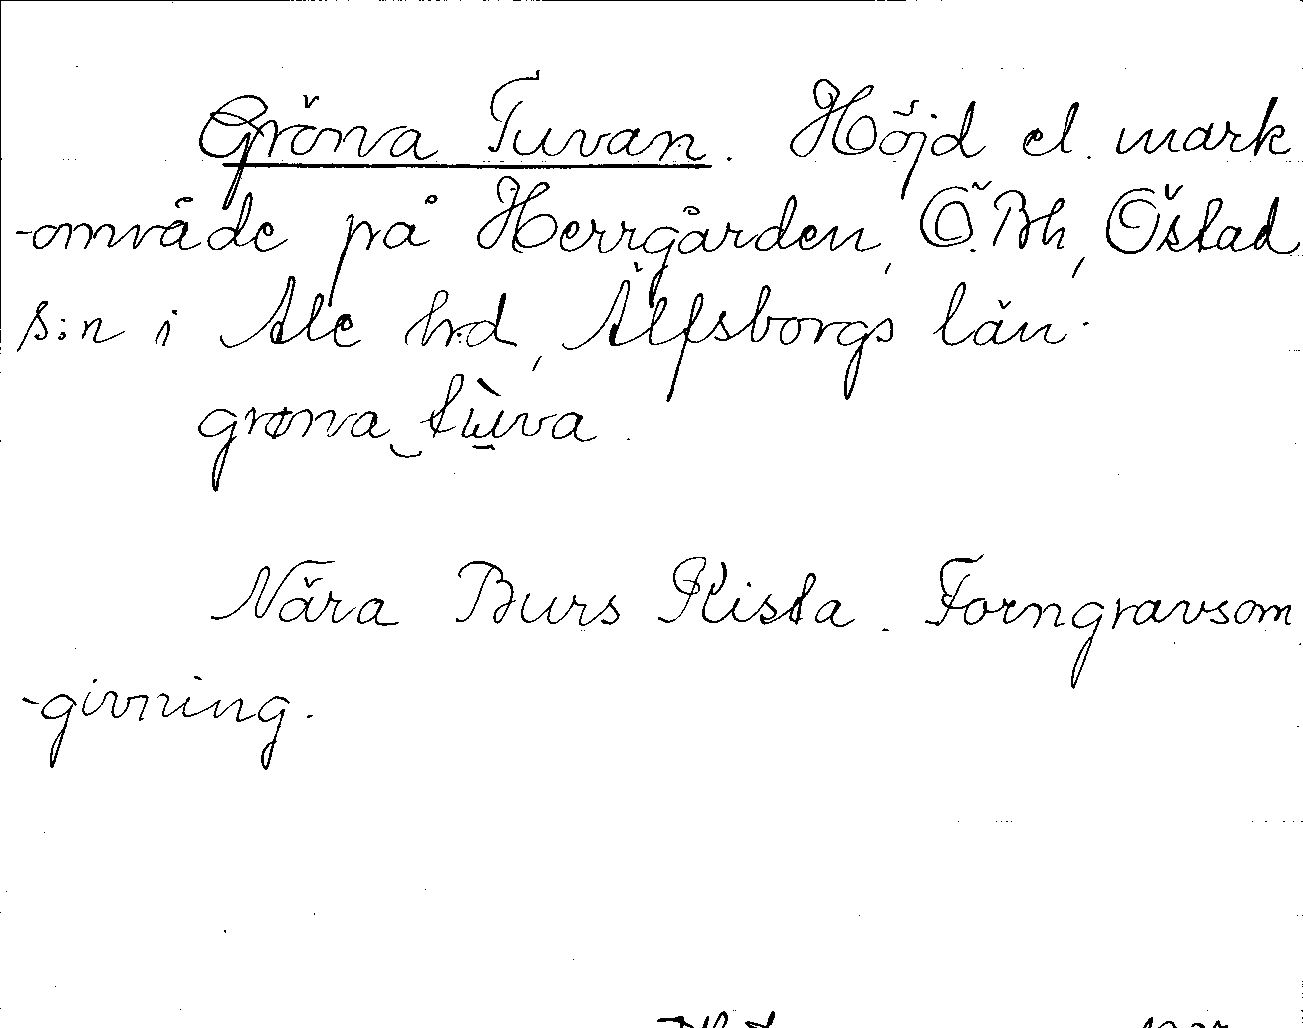 Gröna Tuvan. Höjd el. mark
-område på Herrgården, Ö. Bh, Östad
s:n i Ale hrd, Älfsborgs län.
grøna tùva.
Nära Burs Kista. Forngravsom
-givning.